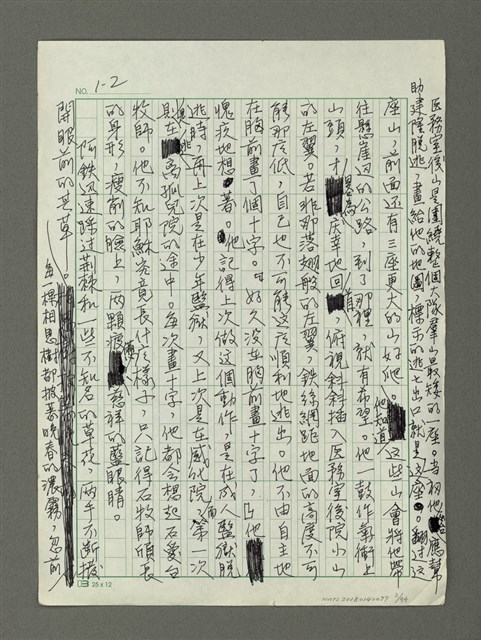 NO. 1-2
医務室後山是圍繞整個隊羣山最矮的一座。當初他應幫
助建隆脫逃,畫給他的地圖,標示的逃亡出口就是這座。翻過這
座山,前面還有三座更大的山好爬。他知道這些山會將他帶
往懸崖邊的公路,到了那裡,就有希望。他一鼓作氣衝上
山頭,才慶幸地回,俯視斜斜插入医務室後院小山
的左翼。若非那落翅般的左翼,鉄絲網距地面的高度不可
能那麼低,自己也不可能這麼順利地逃出。他不由自主地
在胸前畫了個十字。『好久沒在胸前畫十字了,』他
愧疚地想著。他記得上次做這個動作,是在成人監獄脫
逃時,再上次是在少年監獄,又上次是在感化院,而第一次
則在逃離孤兒院的途中。每次畫十字,他都会想起石愛白
牧師。他不知耶穌究竟長什麼樣子,只記得石牧師頎長
的身形,瘦削的臉上,兩顆慈祥的藍眼睛。
阿鉄迅速踩过荆棘和一些不知名的草枝,兩手不斷撥
開眼前的芒草。每一棵相思樹都披著晚春的濃霧,忽前
25 x 12
2/44